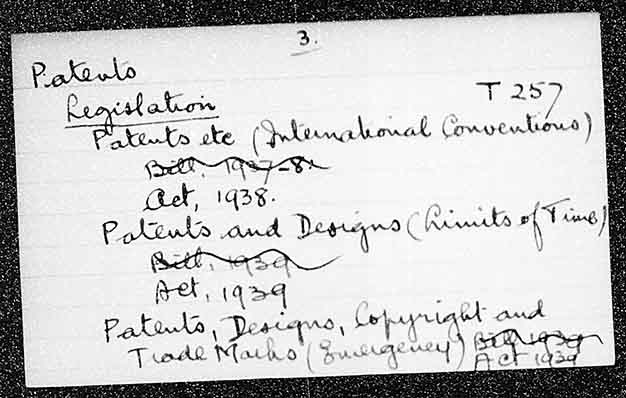 3.
Patents
Legislation T 257
Patents etc (International Conventions)
Bill, 1937-8.
Act, 1938.
Patents and Designs (Limits of Time)
Bill, 1939
Act, 1939
Patents, Designs, Copyright and
Trade Marks (Emergency) Bill 1939
Act 1939